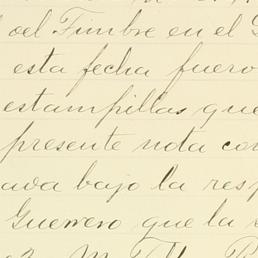 del Timbre en el G
esta fecha fuero
estampillas que
presente nota con
ada bajo la resp
Guerrero que la